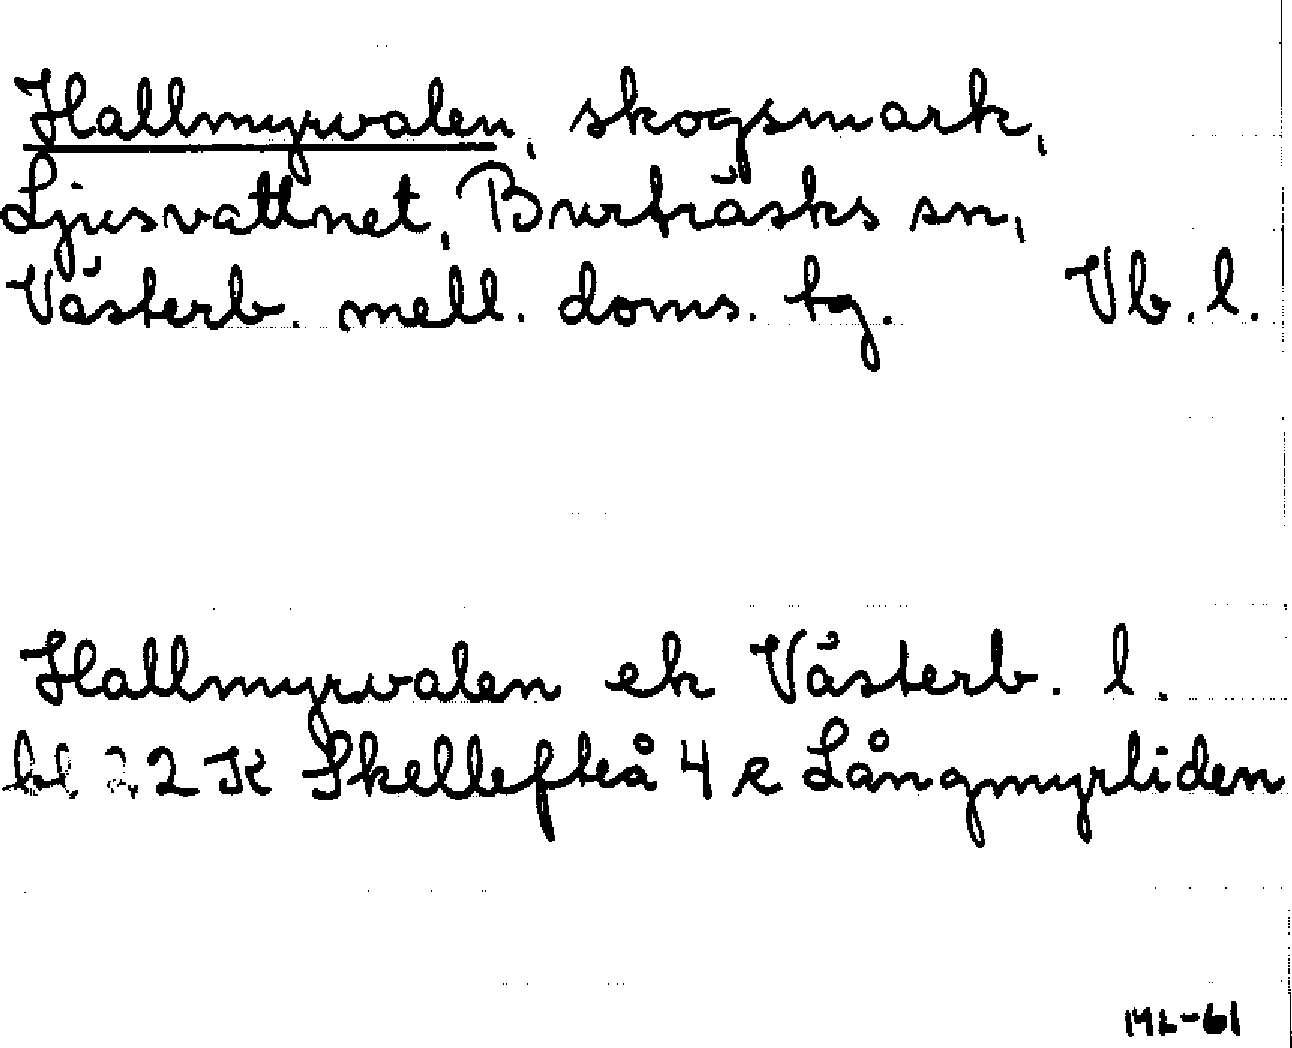 Hallmyrvalen, skogsmark,
Ljusvattnet, Burträsks sn,
Västerb. mell. doms. tg. Vb. l.
Hallmyrvalen ek Västerb. l.
bl 22 K Skellefteå 4 e Långmyrliden
ML-61